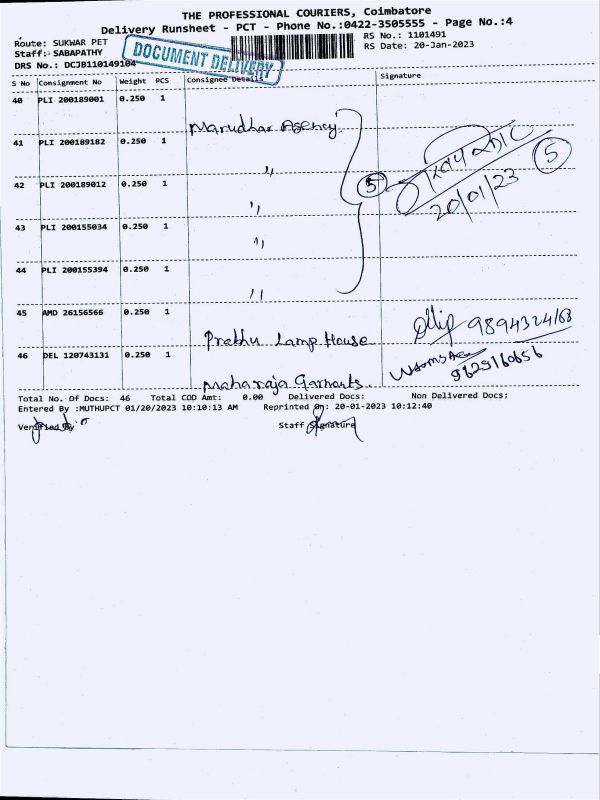 THE PROFESSIONAL COURIERS, Coimbatore
Delivery Runsheet - PCT - Phone No.:0422-3505555 - Page No.:4
Route: SUKWAR PET
RS No.: 1101491
Staff: SABAPATHY
RS Date: 20-Jan-2023
DRS No.: DCJB110149104
DOCUMENT DELIVERY
S No Consignment No Weight PCS Consignee Details Signature
40 PLI 200189001 0.250 1 Marudhar Agency
41 PLI 200189182 0.250 1 ,,
42 PLI 200189012 0.250 1 ,,
43 PLI 200155034 0.250 1 ,,
44 PLI 200155394 0.250 1 ,,
5
20/01/23
5
45 AMD 26156566 0.250 1 Prabhu Lamp House
Dilip
46 DEL 120743131 0.250 1 Maharaja Garments.
9629160656
Total No. Of Docs: 46 Total COD Amt: 0.00 Delivered Docs: Non Delivered Docs:
Entered By :MUTHUPCT 01/20/2023 10:10:13 AM Reprinted On: 20-01-2023 10:12:40
Verified By Staff Signature